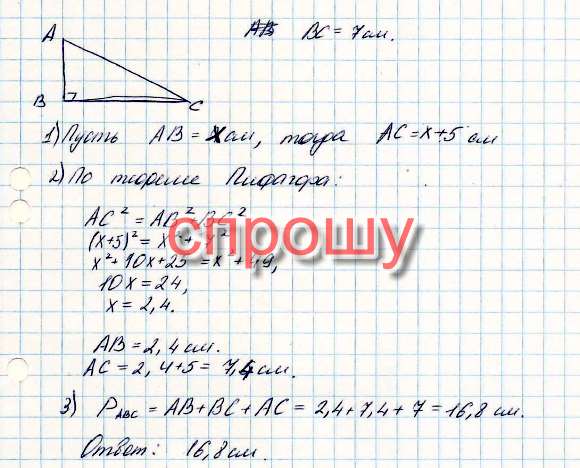 A
B
C
BC = 7 см.
1) Пусть AB = x см, тогда AC = x+5 см
2) По теореме Пифагора:
AC² = AB² BC²
(x+5)² = x² +
x² + 10x + 25 = x² + 49,
10x = 24,
x = 2,4.
спрошу
AB = 2,4 см.
AC = 2,4+5 = 7,4 см.
3) P ABC = AB + BC + AC = 2,4 + 7,4 + 7 = 16,8 см.
Ответ: 16,8 см.